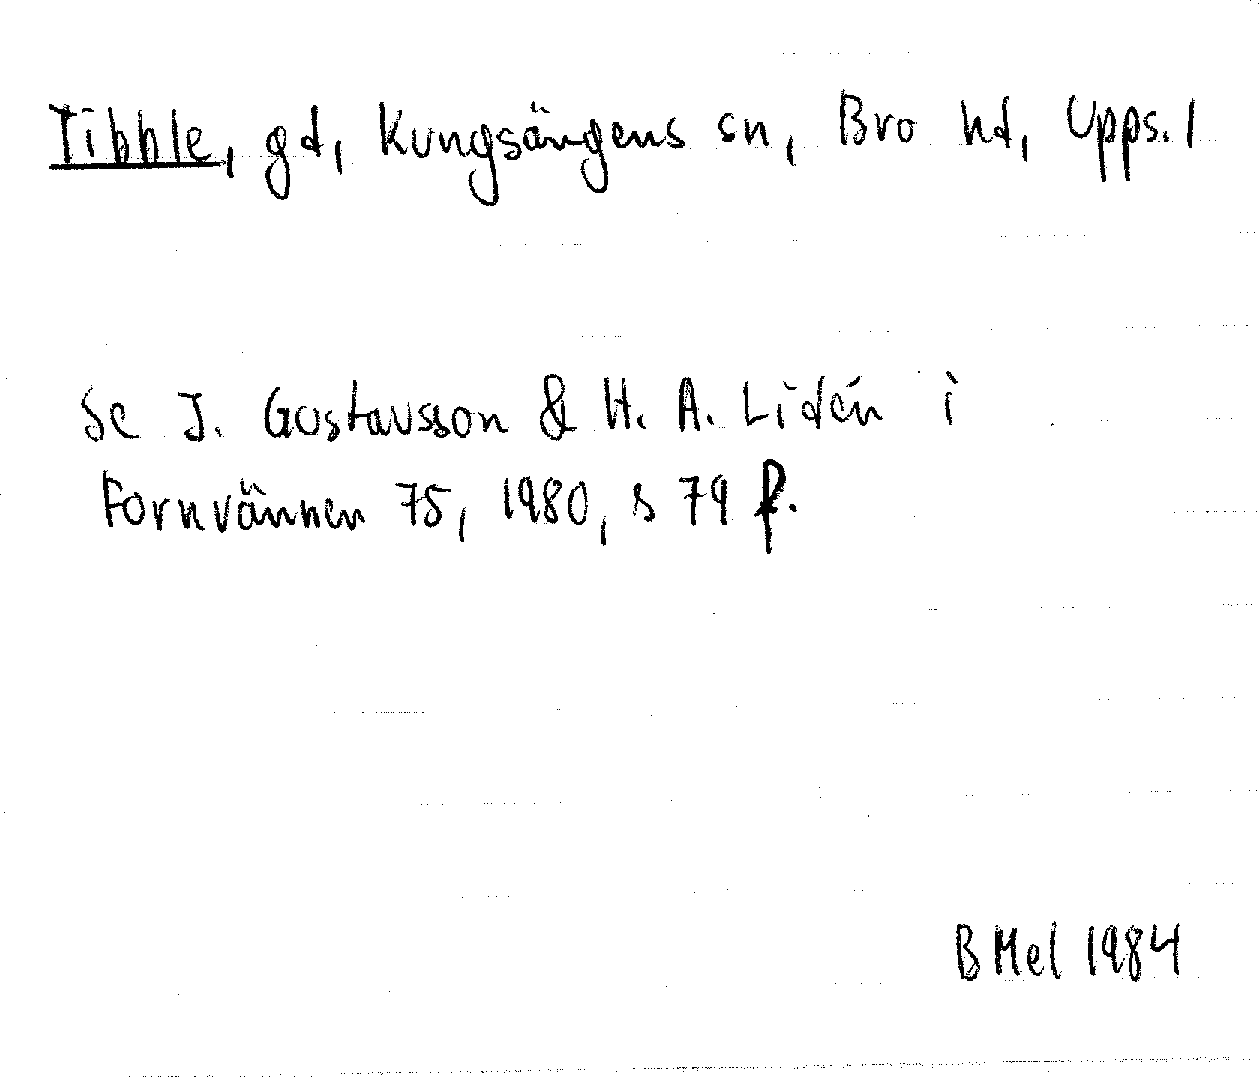 Tibble, gd, Kungsängens sn, Bro hd, Upps. l
Se J. Gustavsson & H. A. Lidén i
Fornvännen 75, 1980, s 79 f.
B Mel 1984